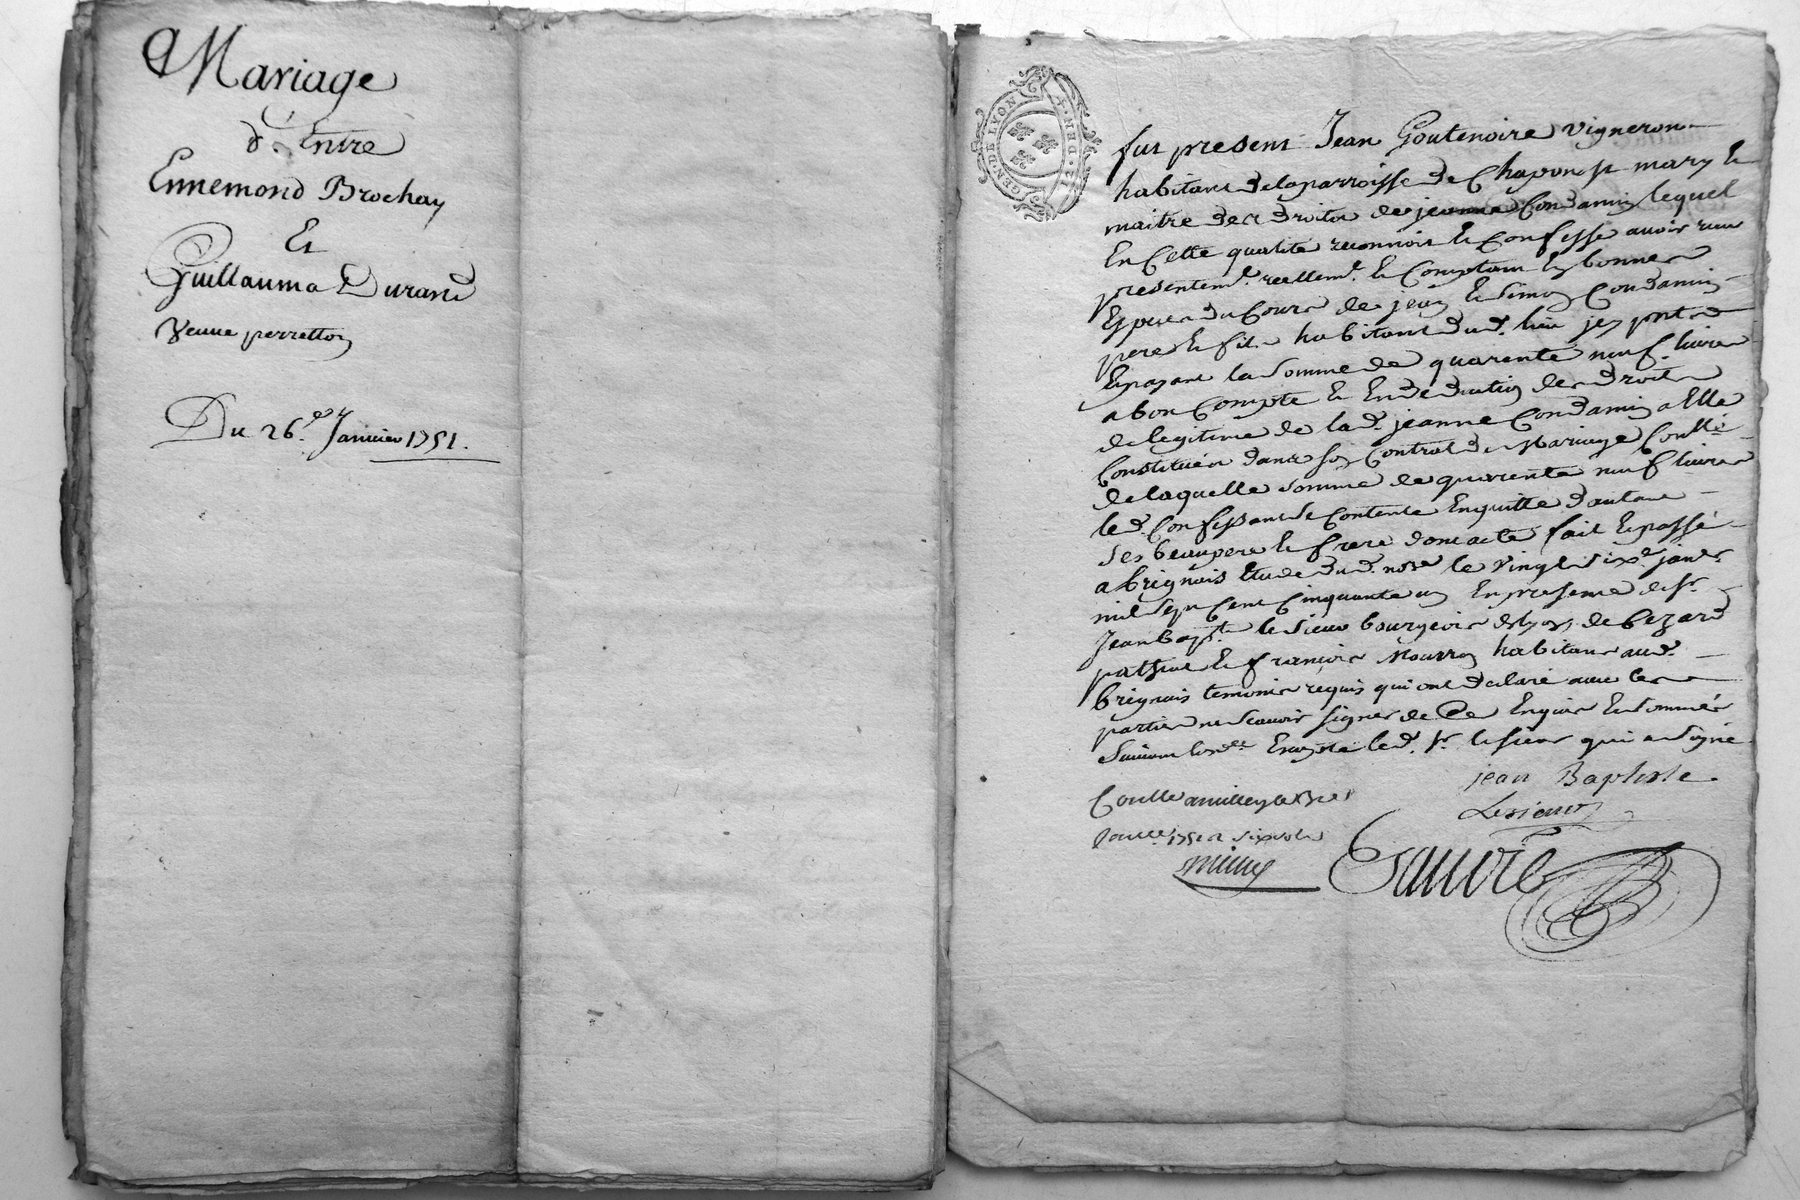 Mariage
d'Entre
Ennemond Brochay
Et
Guillauma Durand
Veuve perretton
Du 26.e Janvier 1751.
GEN. DE LYON
fut present Jean Goutenoire vigneron
habitant de la parroisse de Chaponost mary et
maitre des droits de jeanne Condamin lequel
En Cette qualité reconnoit et Confesse avoir receu
presentemt. reellemt. et Comptant En bonnes
Especes du Cours de jean et Simon Condamin
pere et fils habitant dud. lieu
Et payant la somme de quarente neuf livres
a bon Compte et En deduction des droits
de legitime de lad. jeanne Condamin a Elle
Constitués dans son Contrat de Mariage
de laquelle somme de quarente neuf livres
led. Confessant se Contente En quitte d'autant
ses beaupere et frere dont acte fait et passé
a brignais Etude dud. nore le vingt six.e janv.r
mil sept Cent Cinquante un En presence de sr.
Jean bapt.te le sieur bourgeois de lyon, de
et francois Mourron habitans aud.
brignais temoins requis qui ont declaré avec les
parties ne scavoir signer de Ce Enquis et sommés
Suivant Excepté led. sr. lesieur qui a signé
jean Baptiste
Lesieur